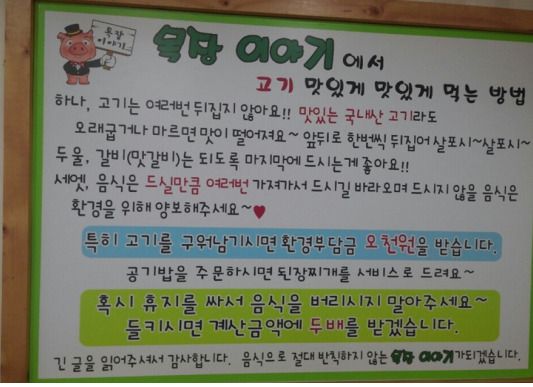 목장
이야기
목장 이야기에서
고기 맛있게 맛있게 먹는 방법
하나, 고기는 여러번 뒤집지 않아요!! 맛있는 국내산 고기라도
오래굽거나 마르면 맛이 떨어져요~ 앞뒤로 한번씩 뒤집어 살포시~살포시~
두울, 갈비(맛갈비)는 되도록 마지막에 드시는게 좋아요!!
세엣, 음식은 드실만큼 여러번 가져가서 드시길 바라오며 드시지 않을 음식은
환경을 위해 양보해주세요~♥
특히 고기를 구워남기시면 환경부담금 오천원을 받습니다.
공기밥을 주문하시면 된장찌개를 서비스로 드려요~
혹시 휴지를 싸서 음식을 버리시지 말아주세요~
들키시면 계산금액에 두배를 받겠습니다.
긴 글을 읽어주셔서 감사합니다. 음식으로 절대 반칙하지 않는 목장 이야기가되겠습니다.